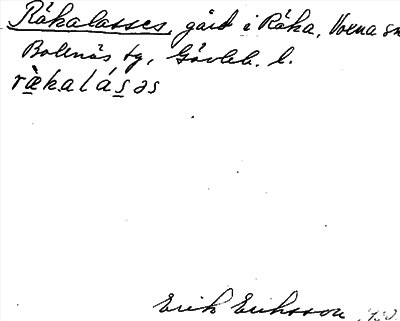 Råkalasses, gård i Råka, Voxna sn
Bollnäs tg, Gävleb. l.
ræ̀kalásəs
Erik Eriksson